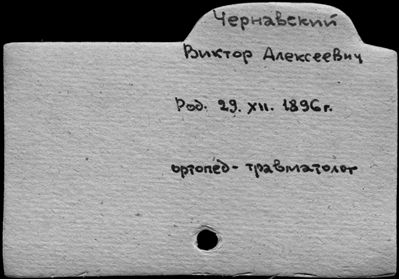 Чернавский
Виктор Алексеевич
Род. 29. XII. 1896 г.
ортопед - травматолог